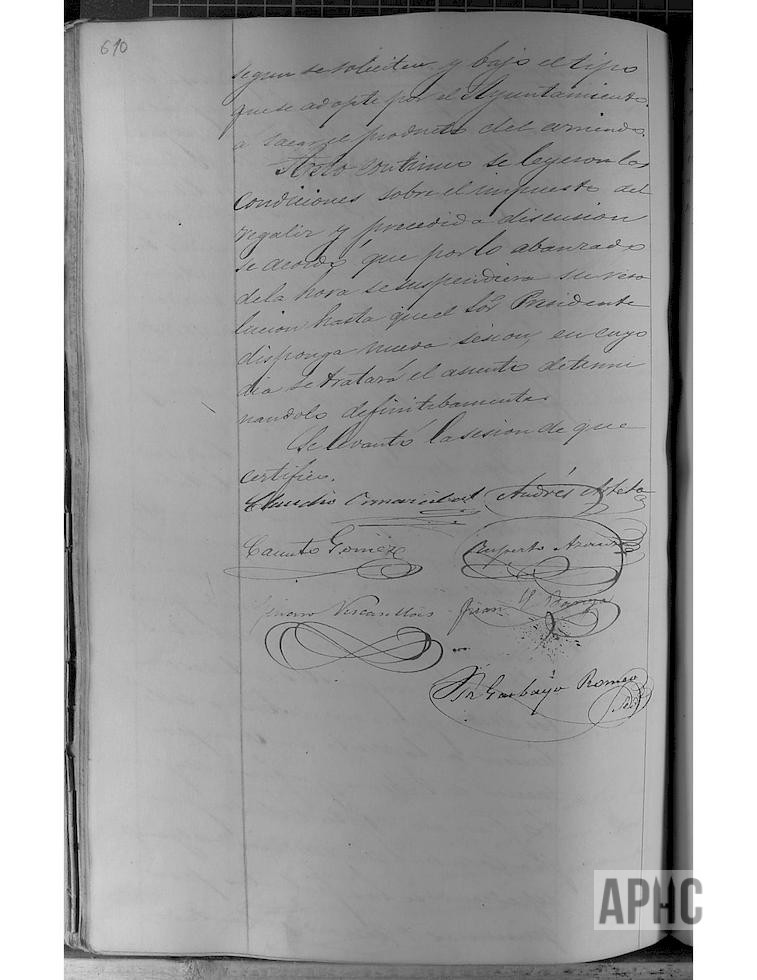 610
segun se soliciten y bajo el tipo
que se adopte por el Ayuntamiento.
a sacar el producto del arriendo.
Acto continuo se leyeron las
Condiciones sobre el impuesto del
regaliz y precedida discusion
se acordó que por lo abanzado
de la hora se suspendiera su reso
lucion hasta que el Sor Presidente
disponga nueva sesion, en cuyo
dia se tratará el asunto determi
nandolo definitibamente.
Se levantó la sesion de que
certifico.
Claudio Andrés
Canuto Gomez Ruperto
Juan
Garbayo Romeo
Sec
APHC